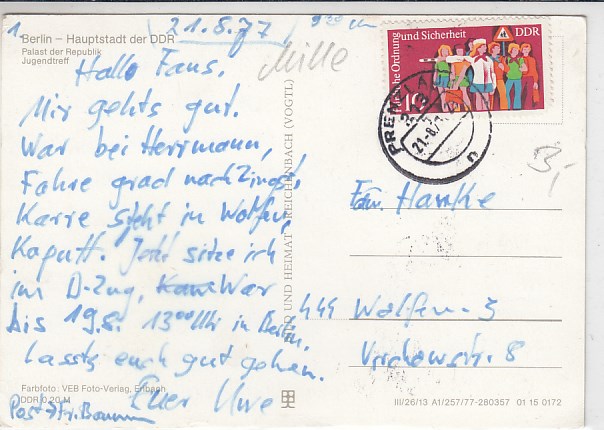 1.
21.8.77
9³⁰ Uhr
Berlin – Hauptstadt der DDR
Palast der Republik
Jugendtreff
Hallo Fans.
Mir gehts gut.
War bei Herrmann,
Fahre grad nach Zingst,
Karre steht in Wolfen,
Kaputt. Jetzt sitze ich
im D-Zug, War
bis 19.8. 13⁰⁰ Uhr in Berlin.
Lassts euch gut gehen.
Euer Uwe
Farbfoto: VEB Foto-Verlag, Erlbach
DDR 0,20 M
Post → Fr.
UND HEIMAT REICHENBACH (VOGTL)
für Ordnung
und Sicherheit
DDR
10
PRENZLAU
213
21.-8.7
3,-
Fam. Hanke
444 Wolfen-3
Virchowstr. 8
III/26/13 A1/257/77-280357 01 15 0172